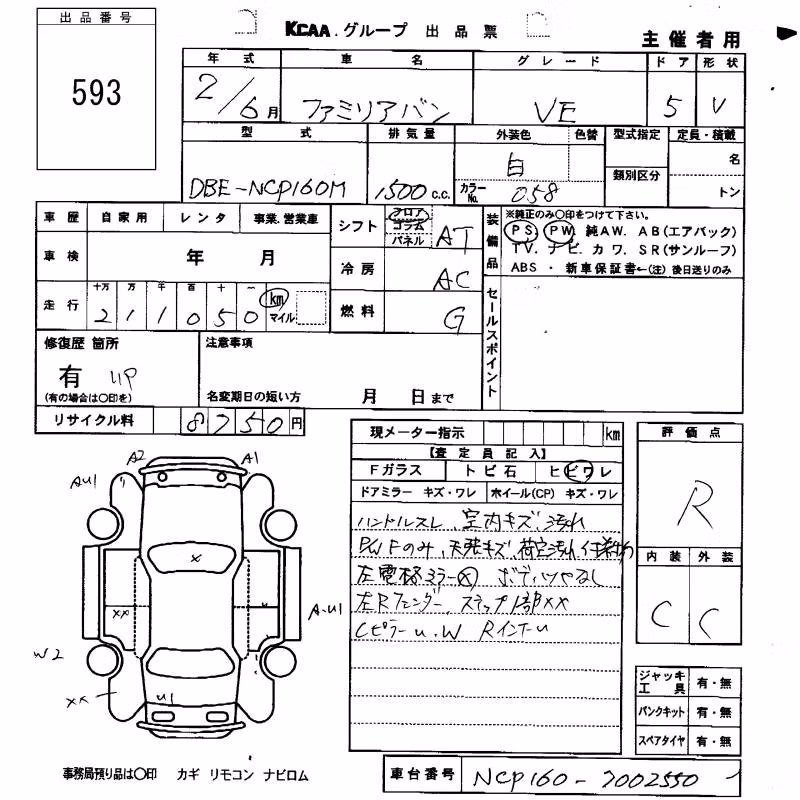 出品番号
593
KCAA.グループ 出品票
主催者用
年式 車名 グレード ドア 形状
2/6月 ファミリアバン VE 5 V
型式 排気量 外装色 色替 型式指定 定員・積載
DBE-NCP160M 1500 c.c. 白 類別区分 名
カラーNo. 058 トン
車歴 自家用 レンタ 事業.営業車
車検 年 月
走行 十万 万 千 百 十 一
211050 km マイル
シフト フロア コラム パネル AT
冷房 AC
燃料 G
装備品
※純正のみ○印をつけて下さい。
PS. PW. 純AW. AB(エアバック)
TV. ナビ. カワ. SR(サンルーフ)
ABS ・ 新車保証書←(注) 後日送りのみ
セールスポイント
修復歴 箇所
有 UP
(有の場合は○印を)
注意事項
名変期日の短い方 月 日まで
リサイクル料 8750円
現メーター指示 km
【査定員記入】
Fガラス トビ石 ヒビワレ
ドアミラー キズ・ワレ ホイール(CP) キズ・ワレ
ハンドルスレ、室内キズ、汚れ
PWFのみ、天張キズ、荷室汚れ
左電格ミラー× ボディツヤなし
左Rフェンダー、ステップ1部××
Cピラーu.W Rインナーu
評価点
R
内装 外装
C C
A2 A1
AU1
×
××
A-U1
W2
××
U1
ジャッキ工具 有・無
パンクキット 有・無
スペアタイヤ 有・無
事務局預り品は○印 カギ リモコン ナビロム
車台番号 NCP160-7002550